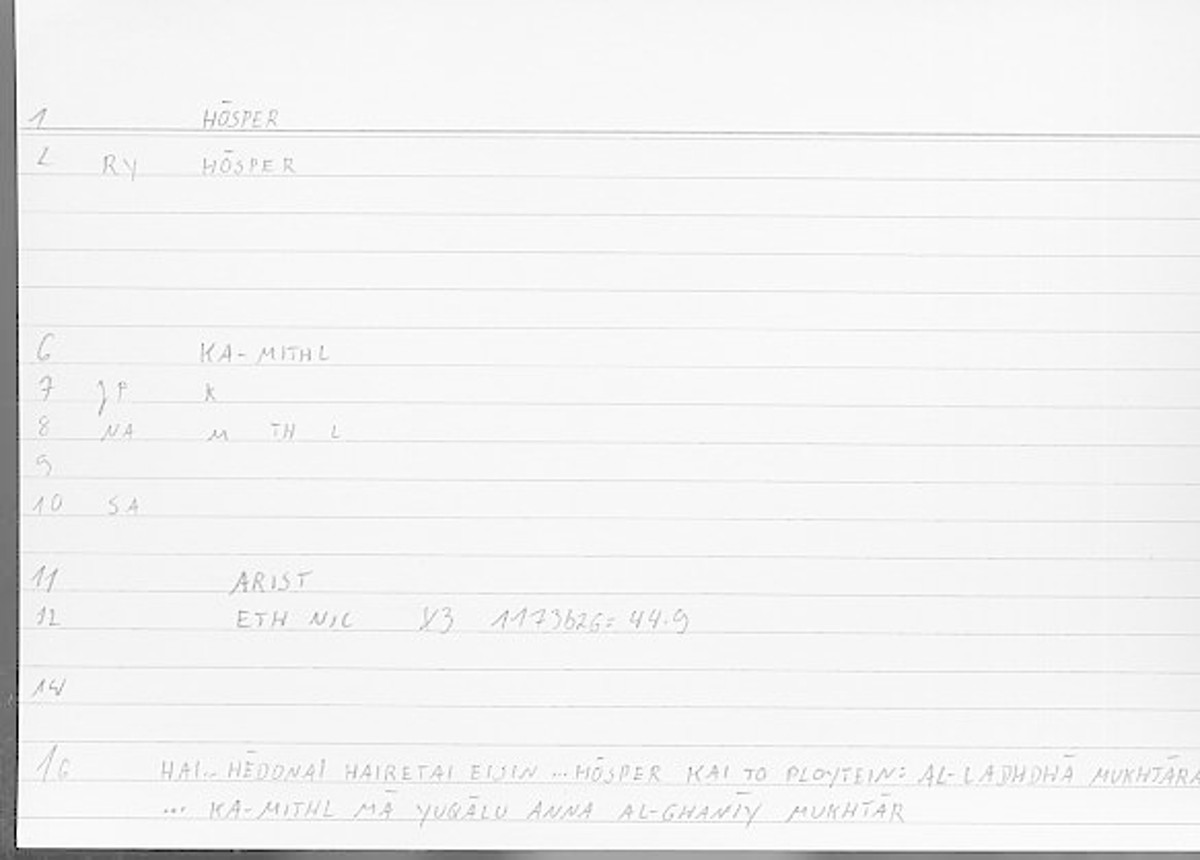 1 HŌSPER
2 RY HŌSPER
6 KA-MITHL
7 JP K
8 NA M TH L
9
10 SA
11 ARIST
12 ETH NIC 1173b26= 44.9
14
16 HAI.. HĒDONAI HAIRETAI EISIN ... HŌSPER KAI TO PLOYTEIN: AL-LADHDHĀ MUKHTĀRA
... KA-MITHL MĀ YUQĀLU ANNA AL-GHANĪY MUKHTĀR